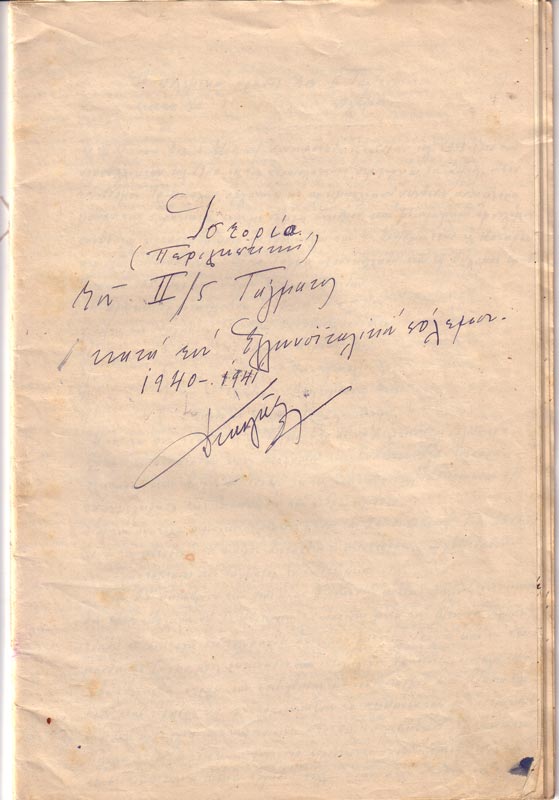 Ἱστορία
(Περιληπτική)
τοῦ II/5 Τάγματος
κατά τόν Ἑλληνοϊταλικόν πόλεμον.
1940-1941